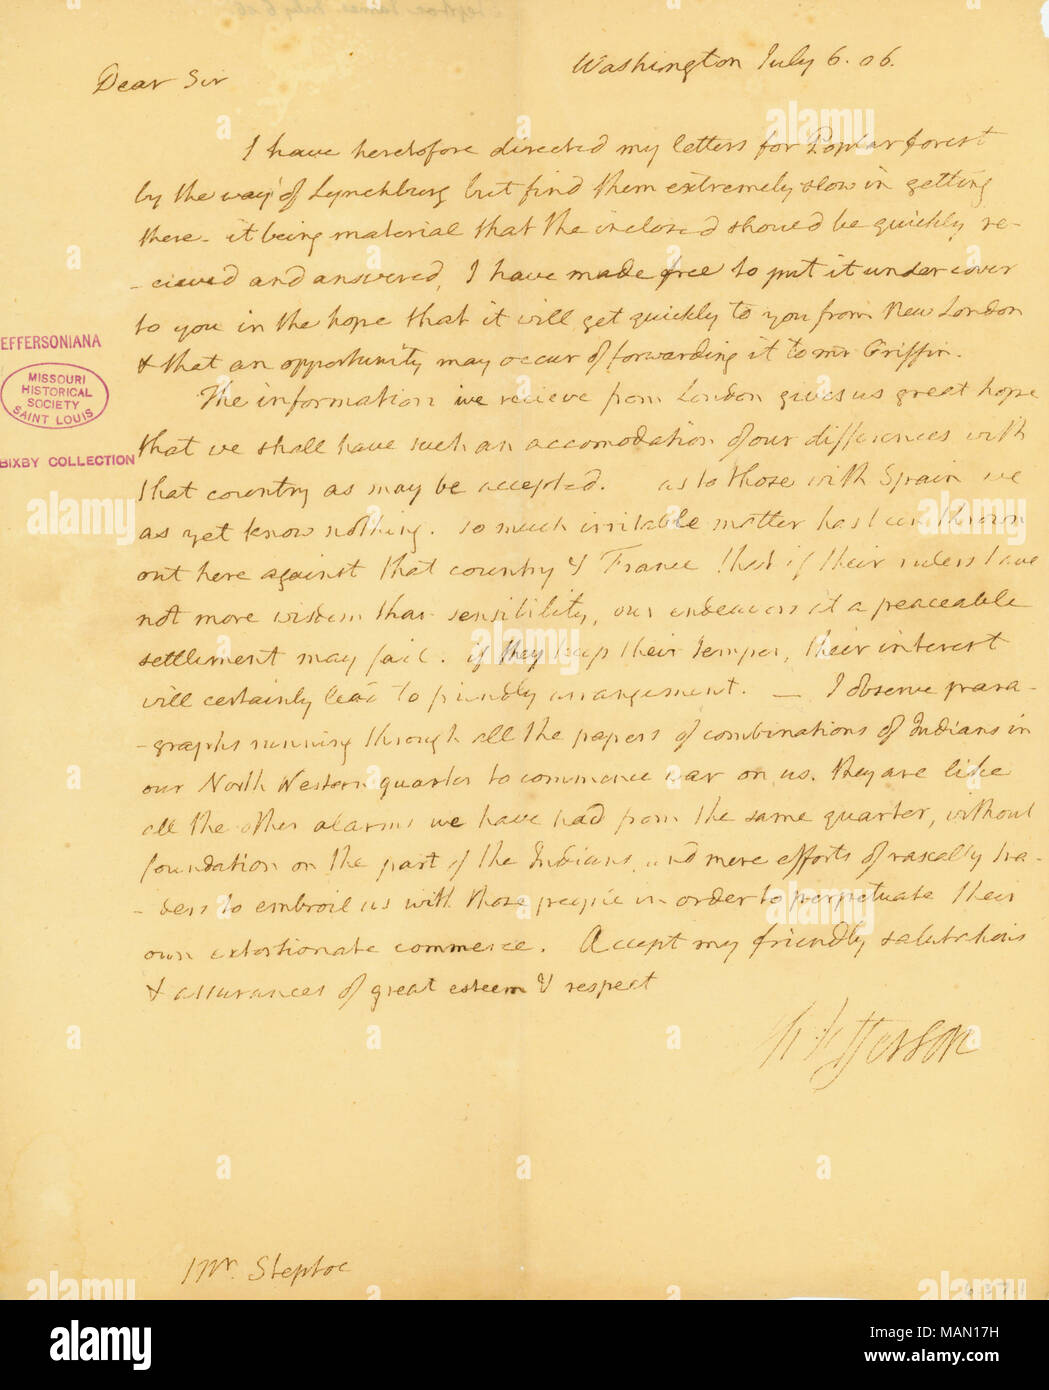 Steptoe James July 6 06
Washington July 6. 06.
Dear Sir
I have heretofore directed my letters for Poplar forest
by the way of Lynchburg but find them extremely slow in getting
there. it being material that the inclosed should be quickly re-
-cieved and answered, I have made free to put it under cover
to you in the hope that it will get quickly to you from New London
& that an opportunity may occur of forwarding it to mr Griffin.
The information we recieve from London gives us great hope
that we shall have such an accomodation of our differences with
that country as may be accepted. as to those with Spain we
as yet know nothing. so much irritable matter has been thrown
out here against that country & France that if their rulers have
not more wisdom than sensibility, our endeavors at a peaceable
settlement may fail. if they keep their temper, their interest
will certainly lead to friendly arrangement. — I observe para-
-graphs running through all the papers of combinations of Indians in
our North Western quarter to commence war on us. they are like
all the other alarms we have had from the same quarter, without
foundation on the part of the Indians, and mere efforts of rascally tra-
-ders to embroil us with those people in order to perpetuate their
own extortionate commerce. Accept my friendly salutations
& assurances of great esteem & respect
Th Jefferson
Mr. Steptoe
EFFERSONIANA
MISSOURI
HISTORICAL
SOCIETY
SAINT LOUIS
BIXBY COLLECTION
alamy
a
alamy
Image ID: MAN17H
www.alamy.com